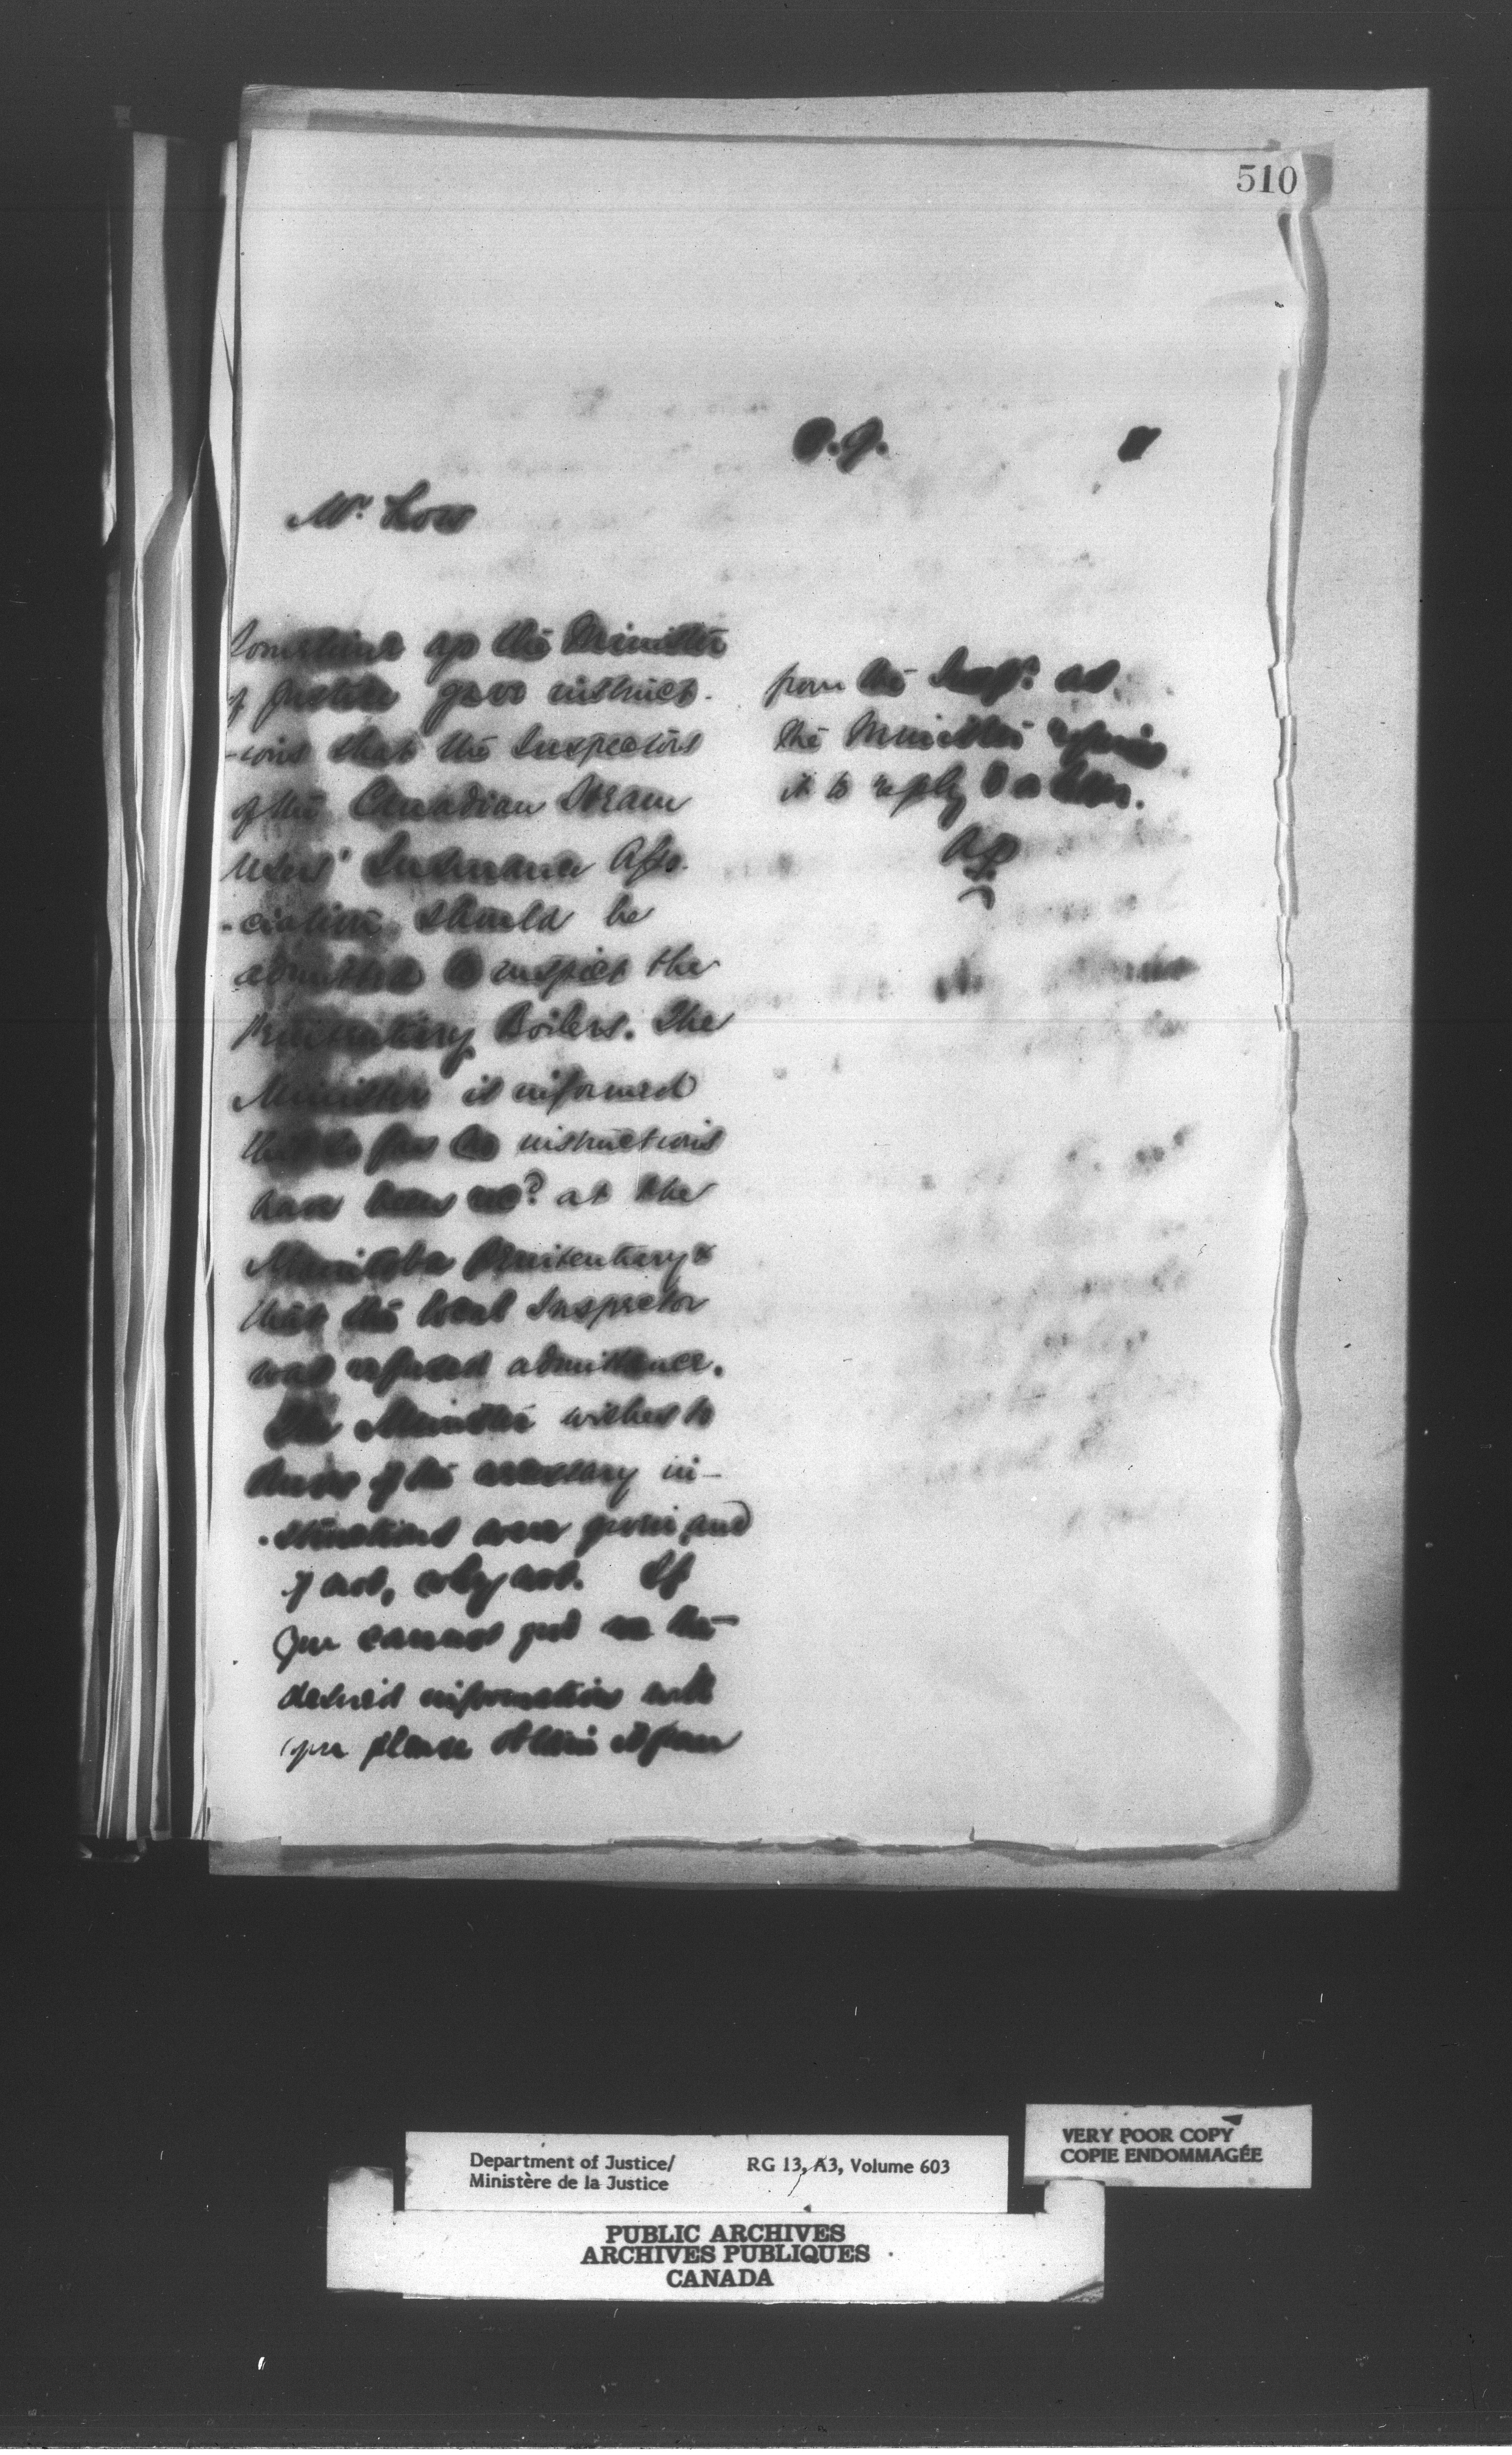 510
Mr.
Sometime ago the Minister
of Justice gave instruct-
-ions that the Inspectors
of the Canadian Steam
Users' Insurance Asso
-ciation should be
admitted to inspect the
Penitentiary Boilers. The
Minister is informed
that so far no instructions
have been recd at the
Manitoba Penitentiary &
that the local Inspector
was refused admittance.
The Minister wishes to
know if the necessary in-
-structions were given, and
if not, why not. If
you cannot get the
desired information will
you please obtain it from
from the Inspr as
the Minister requires
it to reply to a letter.
AP
Department of Justice/
Ministère de la Justice
RG 13, A3, Volume 603
VERY POOR COPY
COPIE ENDOMMAGÉE
PUBLIC ARCHIVES
ARCHIVES PUBLIQUES
CANADA